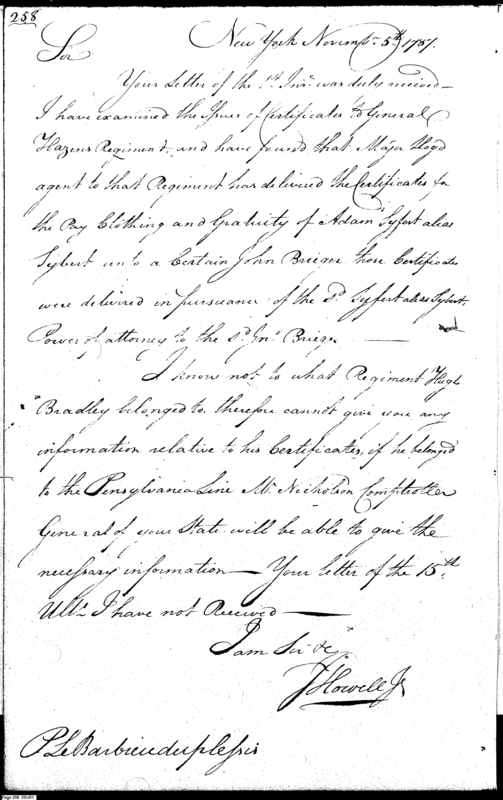 258
New York Novemr. 5th, 1787.
Sir
Your Letter of the 1st. Inst. was duly received—
I have examined the Issues of Certificates to General
Hazens Regiment, and have found that Major Lloyd
agent to that Regiment has delivered the Certificates for
the Pay Clothing and Gratuity of Adam Syfert alias
Sybert unto a Certain John Brieger those Certificates
were delivred in pursuance of the sd. Syfert alias Sybert,
Power of attorney to the sd. Jno. Brieger —
I know not to what Regiment Hugh
Bradley belonged to, therefore cannot give you any
information relative to his Certificates, if he belonged
to the Pensylvania Line Mr. Nicholson Comptroller
General of your State will be able to give the
necessary information — Your letter of the 15th.
Ulto. I have not Received —
I am Sir &c
J Howell Jr
P Le Barbieu duplessis
Page 258 GGJ01